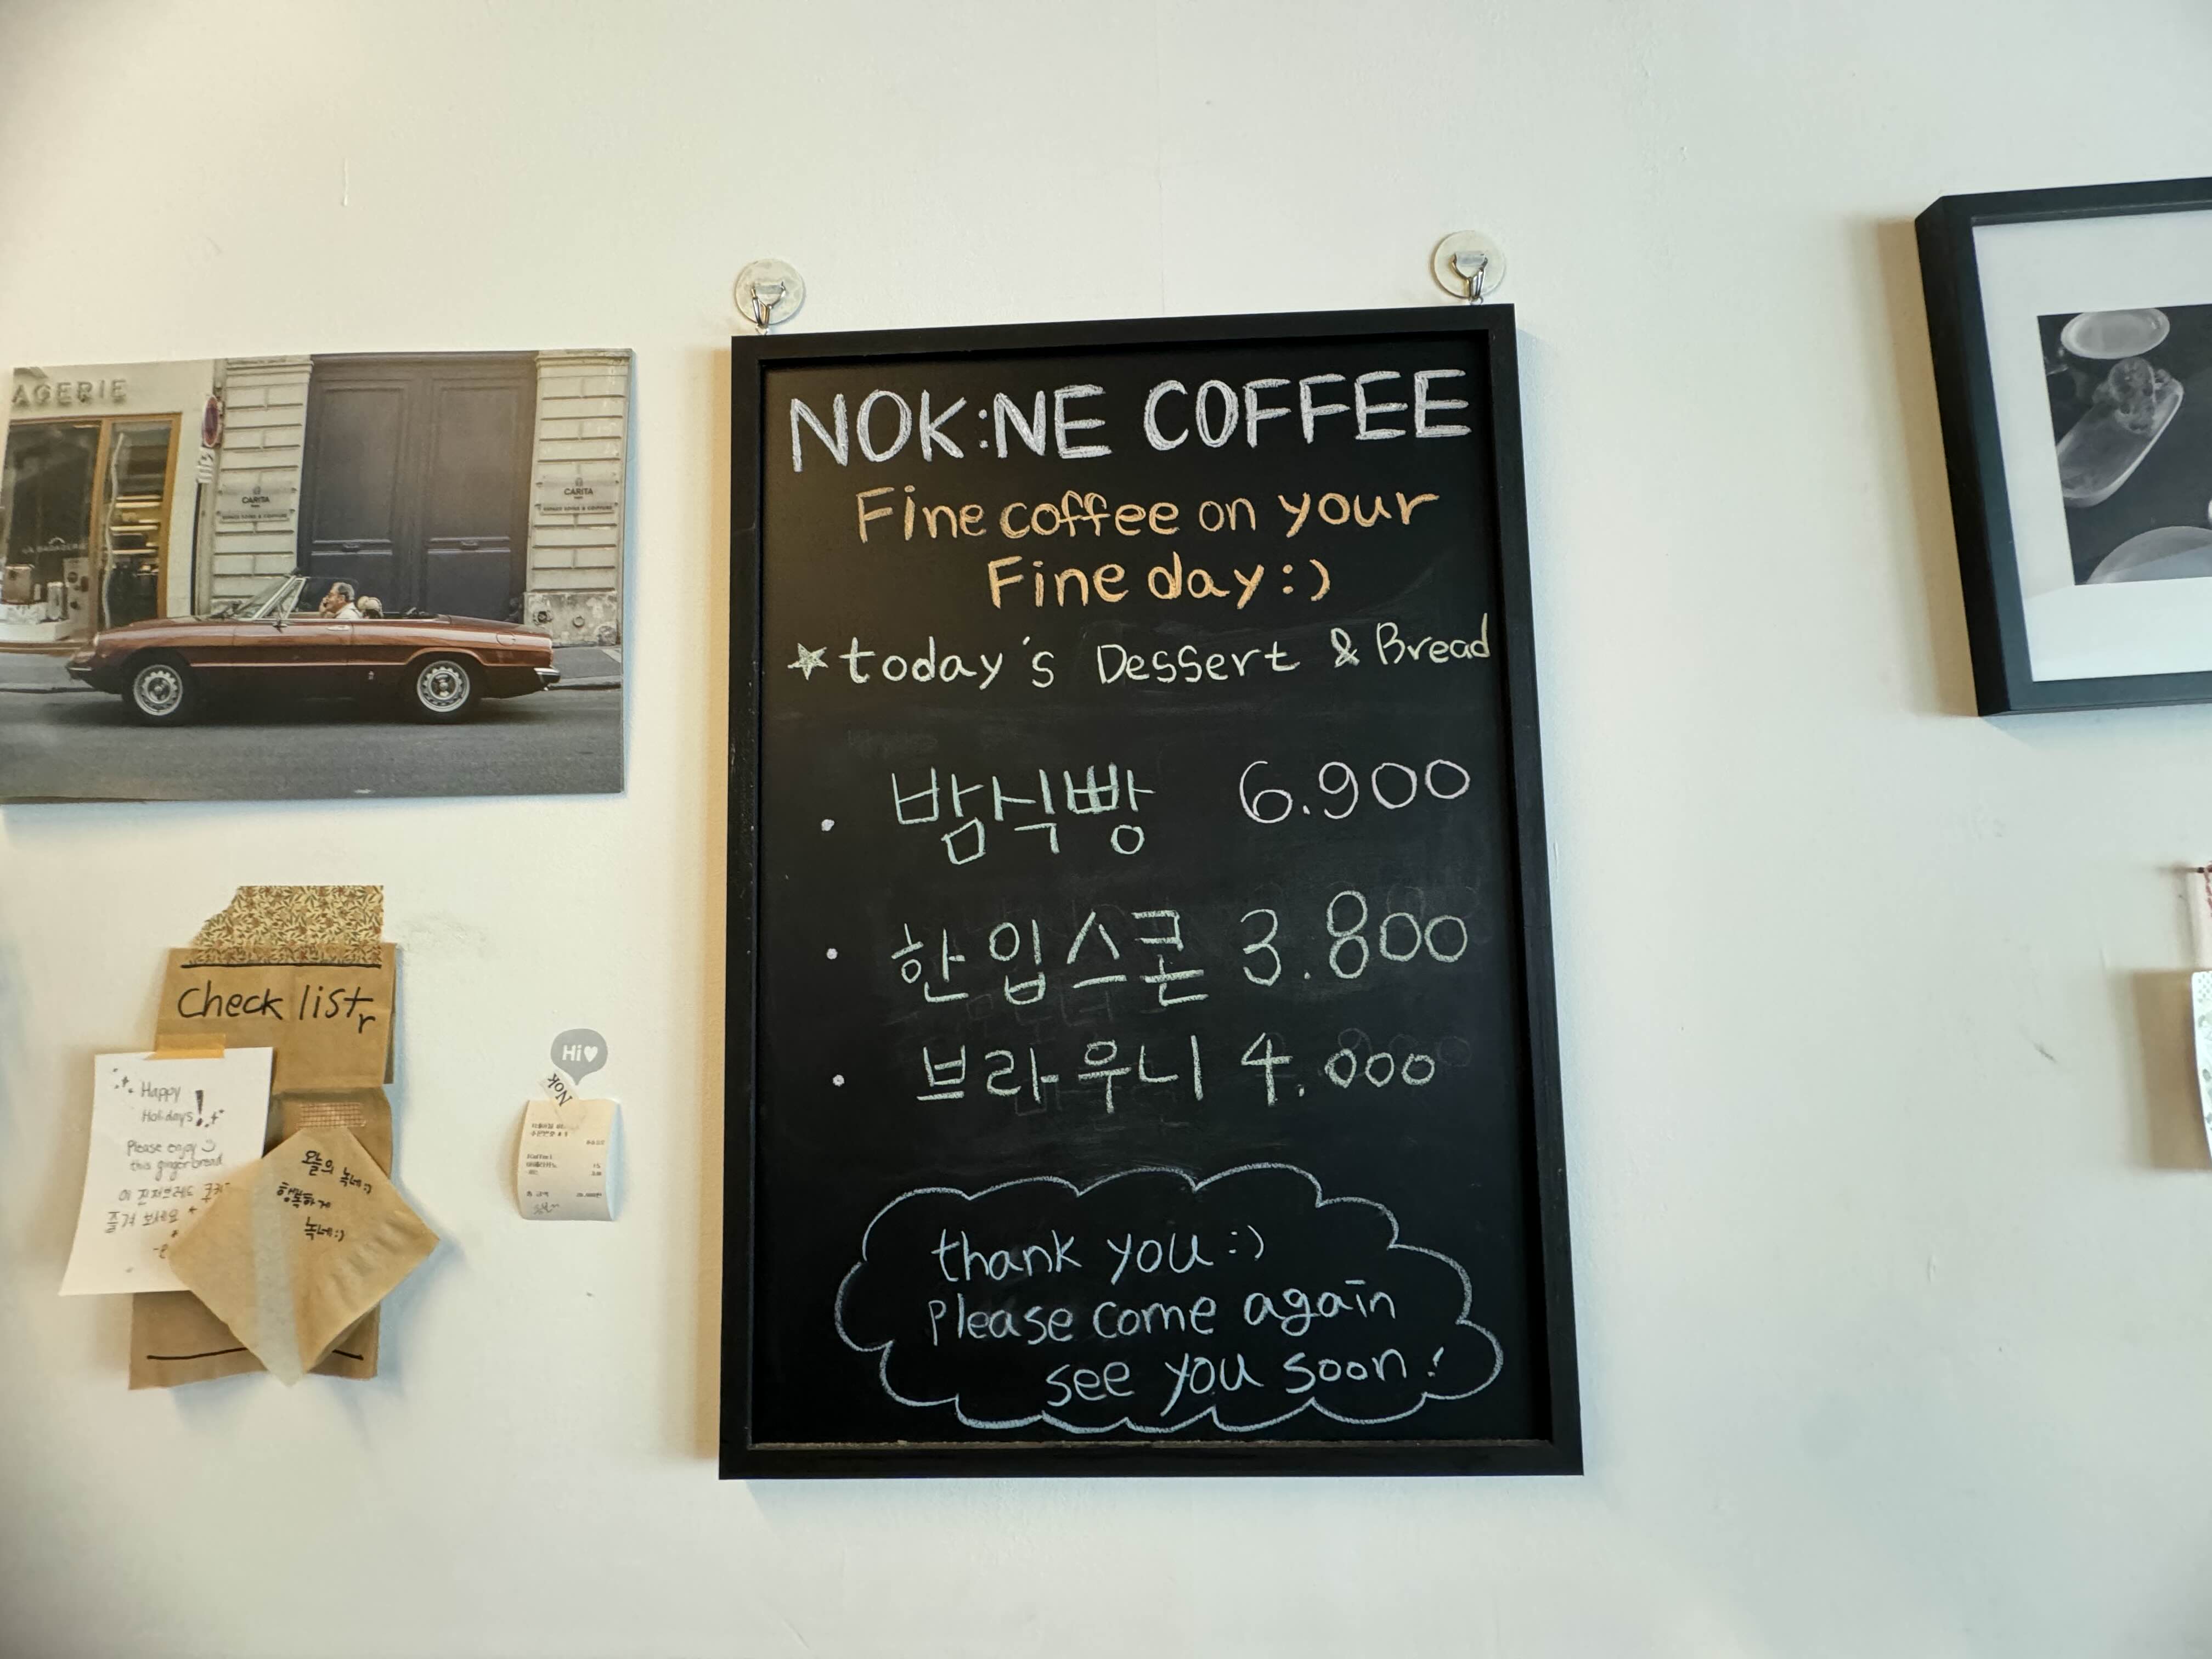 NOK:NE COFFEE
Fine coffee on your
Fine day:)
☆today's Dessert & Bread
• 밤식빵 6.900
• 한입스콘 3.800
• 브라우니 4.000
thank you:)
Please come again
see you soon!
AGERIE
CARITA
CARITA
Check list
Happy
Holidays!
Please enjoy
this gingerbread
이
즐겨 보세요
오늘의 녹네:)
행복하게
녹네:)
Hi♥
NOK